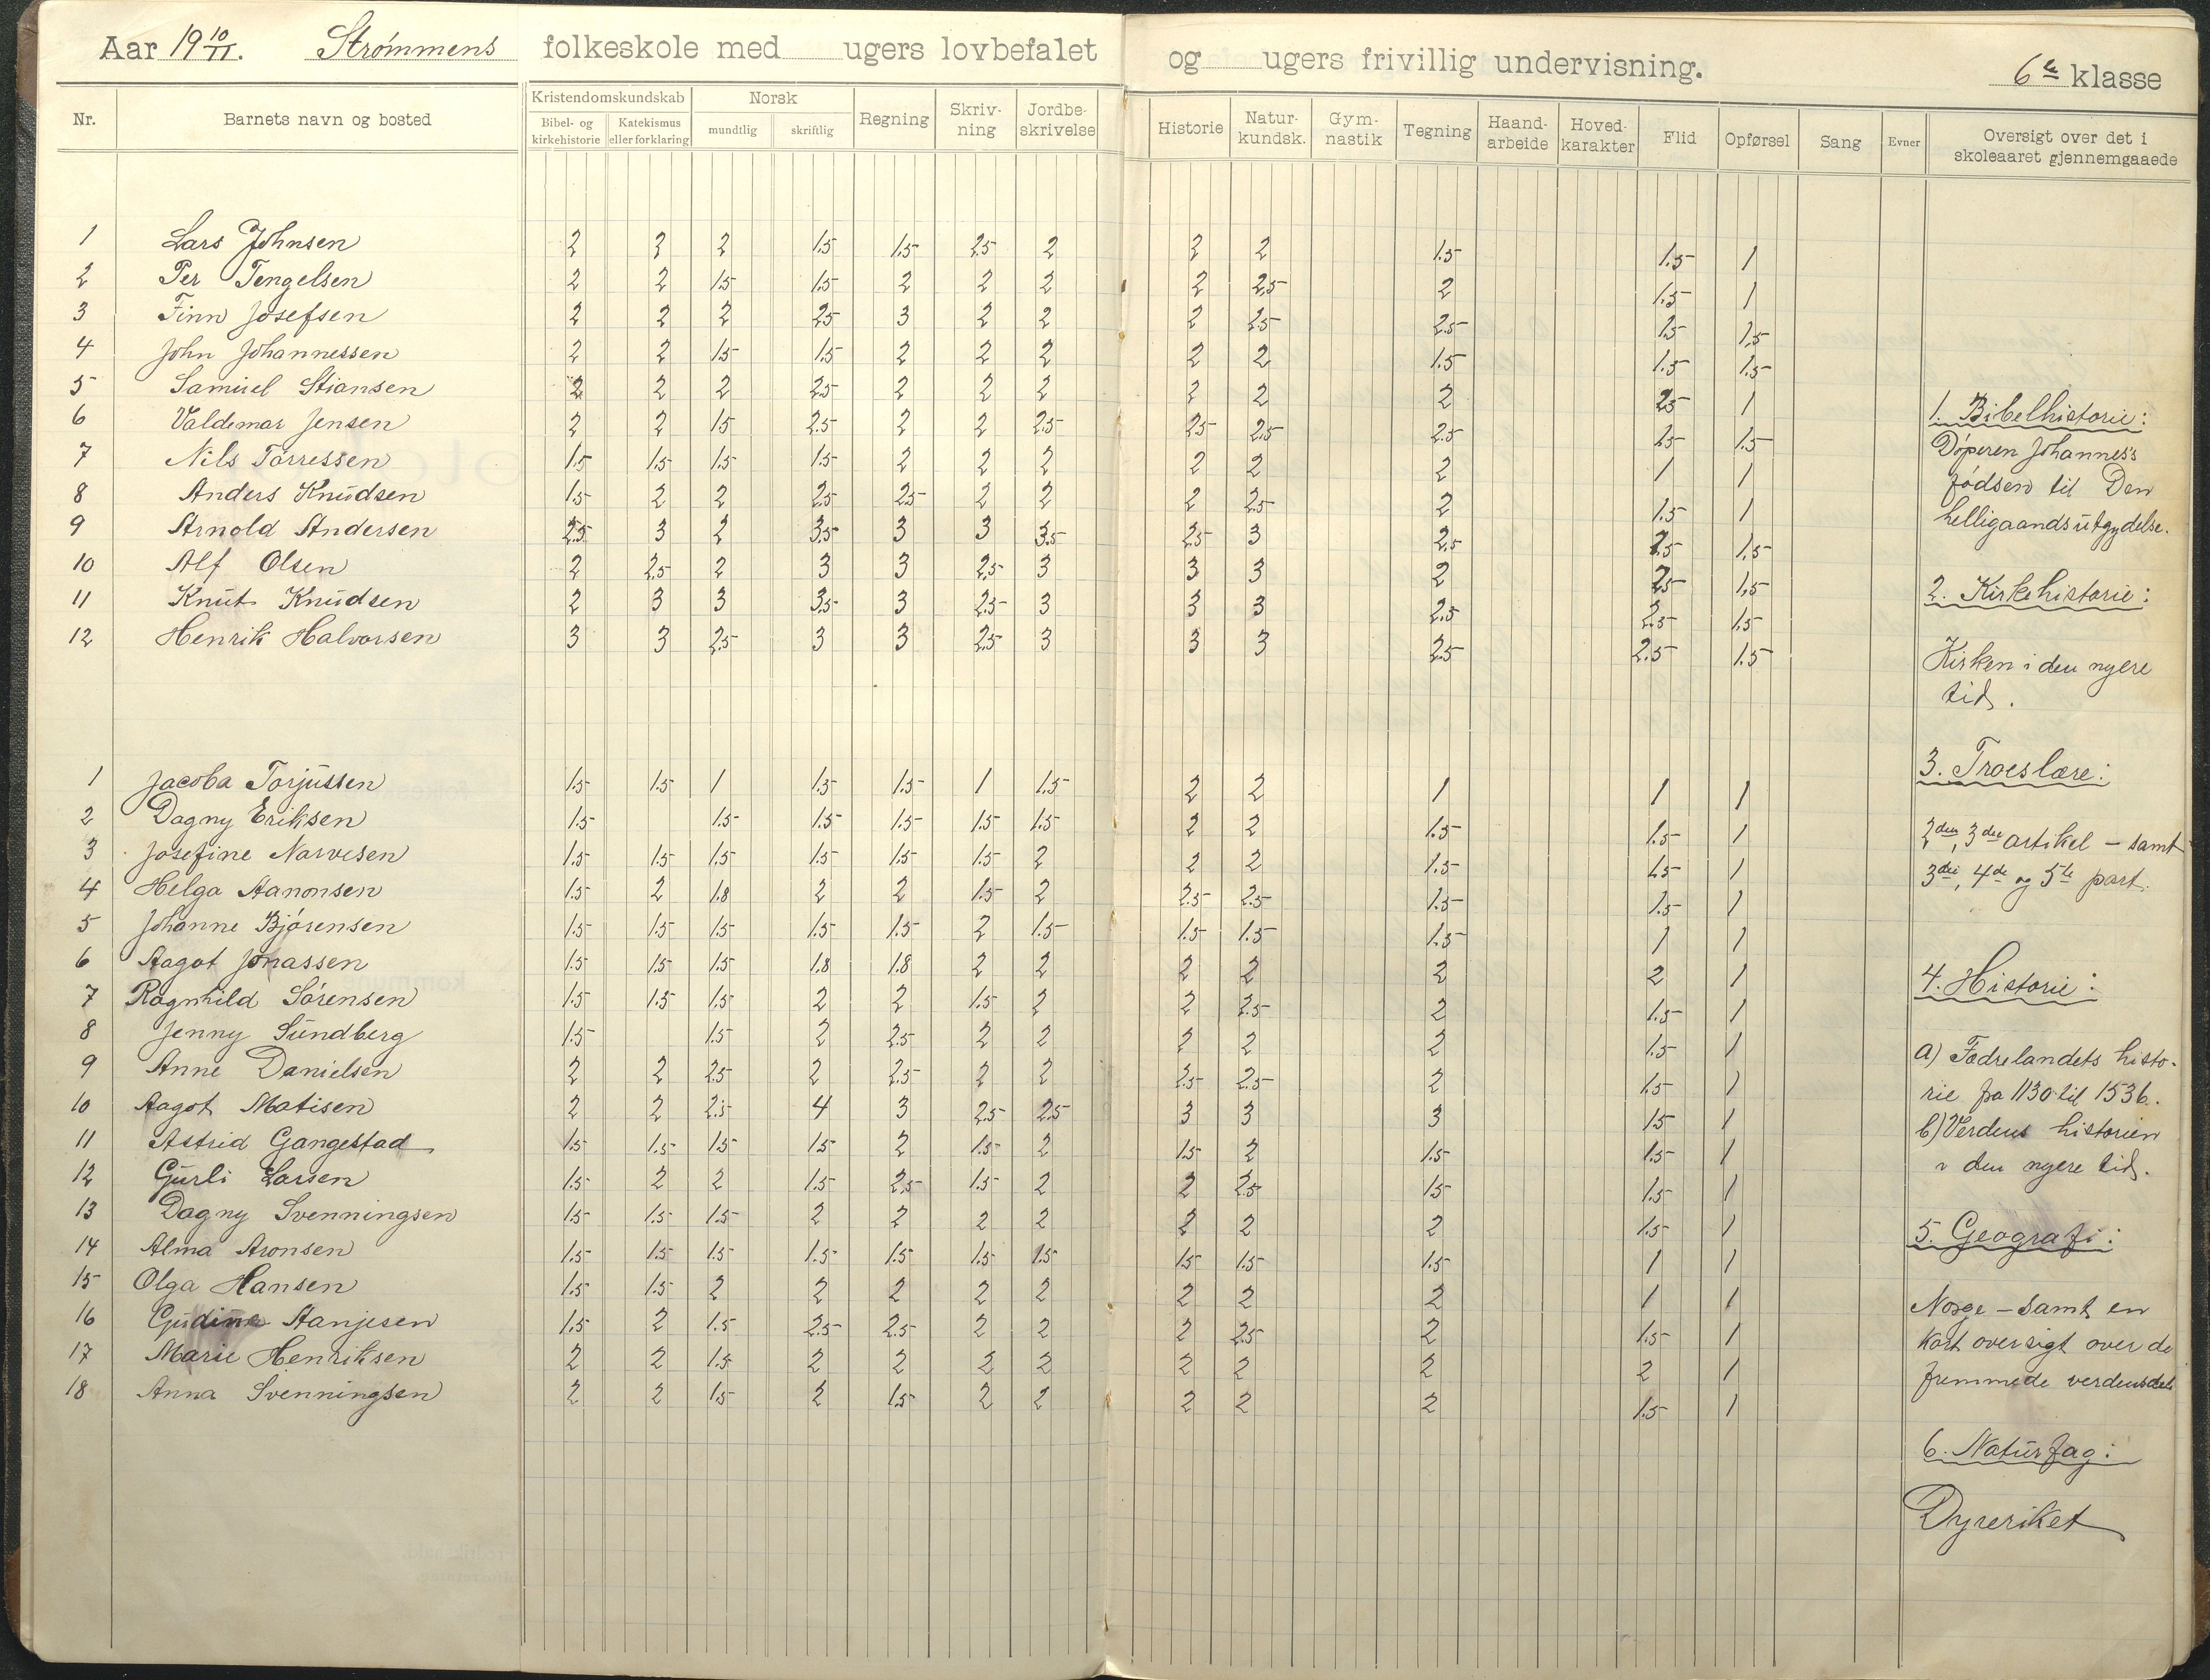 Aar 19 10/11. Strømmens folkeskole med ugers lovbefalet og ugers frivillig undervisning. 6te klasse
Nr. Barnets navn og bosted Kristendomskundskab Norsk Regning Skriv-ning Jordbe-skrivelse Historie Natur-kundsk. Gym-nastik Tegning Haand-arbeide Hoved-karakter Flid Opførsel Sang Evner Oversigt over det i skoleaaret gjennemgaaede
Bibel- og kirkehistorie Katekismus eller forklaring mundtlig skriftlig
1 Lars Johnsen 2 2 2 1.5 1.5 2.5 2 2 2 1.5 1.5 1
2 Per Tengelsen 2 2 1.5 1.5 2 2 2 2 2.5 2 1.5 1
3 Finn Josefsen 2 2 2 2.5 3 2 2 2 2.5 2.5 1.5 1.5
4 John Johannessen 2 2 1.5 1.5 2 2 2 2 2 1.5 1.5 1.5
5 Samuel Stiansen 2 2 2 2.5 2 2 2 2 2 2 2.5 1
6 Valdemar Jensen 2 2 1.5 2.5 2 2 2.5 2.5 2.5 2.5 2.5 1.5
7 Nils Torressen 1.5 1.5 1.5 1.5 2 2 2 2 2 2 1 1
8 Anders Knudsen 1.5 2 2 2.5 2.5 2 2 2 2.5 2 1.5 1
9 Arnold Andersen 2.5 3 2 3.5 3 3 3.5 2.5 3 2.5 2.5 1.5
10 Alf Olsen 2 2.5 2 3 3 2.5 3 3 3 2 2.5 1.5
11 Knut Knudsen 2 3 3 3.5 3 2.5 3 3 3 2.5 2.5 1.5
12 Henrik Halvorsen 3 3 2.5 3 3 2.5 3 3 3 2.5 2.5 1.5
1 Jacoba Torjussen 1.5 1.5 1 1.5 1.5 1 1.5 2 2 1 1 1
2 Dagny Eriksen 1.5 1.5 1.5 1.5 1.5 1.5 2 2 1.5 1.5 1
3 Josefine Narvesen 1.5 1.5 1.5 1.5 1.5 1.5 2 2 2 1.5 1.5 1
4 Helga Aanonsen 1.5 2 1.8 2 2 1.5 2 2.5 2.5 1.5 1.5 1
5 Johanne Bjørensen 1.5 1.5 1.5 1.5 1.5 2 1.5 1.5 1.5 1.5 1 1
6 Aagot Jonassen 1.5 1.5 1.5 1.8 1.8 2 2 2 2 2 2 1
7 Ragnhild Sørensen 1.5 1.5 1.5 2 2 1.5 2 2 2.5 2 1.5 1
8 Jenny Sundberg 1.5 1.5 2 2.5 2 2 2 2 2 1.5 1
9 Anne Danielsen 2 2 2.5 2 2.5 2 2 2.5 2.5 2 1.5 1
10 Aagot Matisen 2 2 2.5 4 3 2.5 2.5 3 3 3 1.5 1
11 Astrid Gangestad 1.5 1.5 1.5 1.5 2 1.5 2 1.5 2 1.5 1.5 1
12 Gurli Larsen 1.5 2 2 1.5 2.5 1.5 2 2 2.5 1.5 1.5 1
13 Dagny Svenningsen 1.5 1.5 1.5 2 2 2 2 2 2 2 1.5 1
14 Alma Aronsen 1.5 1.5 1.5 1.5 1.5 1.5 1.5 1.5 1.5 1.5 1 1
15 Olga Hansen 1.5 1.5 2 2 2 2 2 2 2 2 1 1
16 Gudine Aanjesen 1.5 2 1.5 2.5 2.5 2 2 2 2.5 2 1.5 1
17 Marie Henriksen 2 2 1.5 2 2 2 2 2 2 2 2 1
18 Anna Svenningsen 2 2 1.5 2 1.5 2 2 2 2 2 1.5 1
1. Bibelhistorie:
Døperen Johannes's
fødsen til Den
helligaandsutgydelse.
2. Kirkehistorie:
Kirken i den nyere
tid.
3. Troeslære:
2den, 3die artikel – samt
3die, 4de og 5te part.
4. Historie:
a) Fædrelandets histo-
rie fra 1130 til 1536.
b) Verdens historien
i den nyere tid.
5. Geografi:
Norge – samt en
kort oversigt over de
fremmede verdensdele
6. Naturfag:
Dyreriket